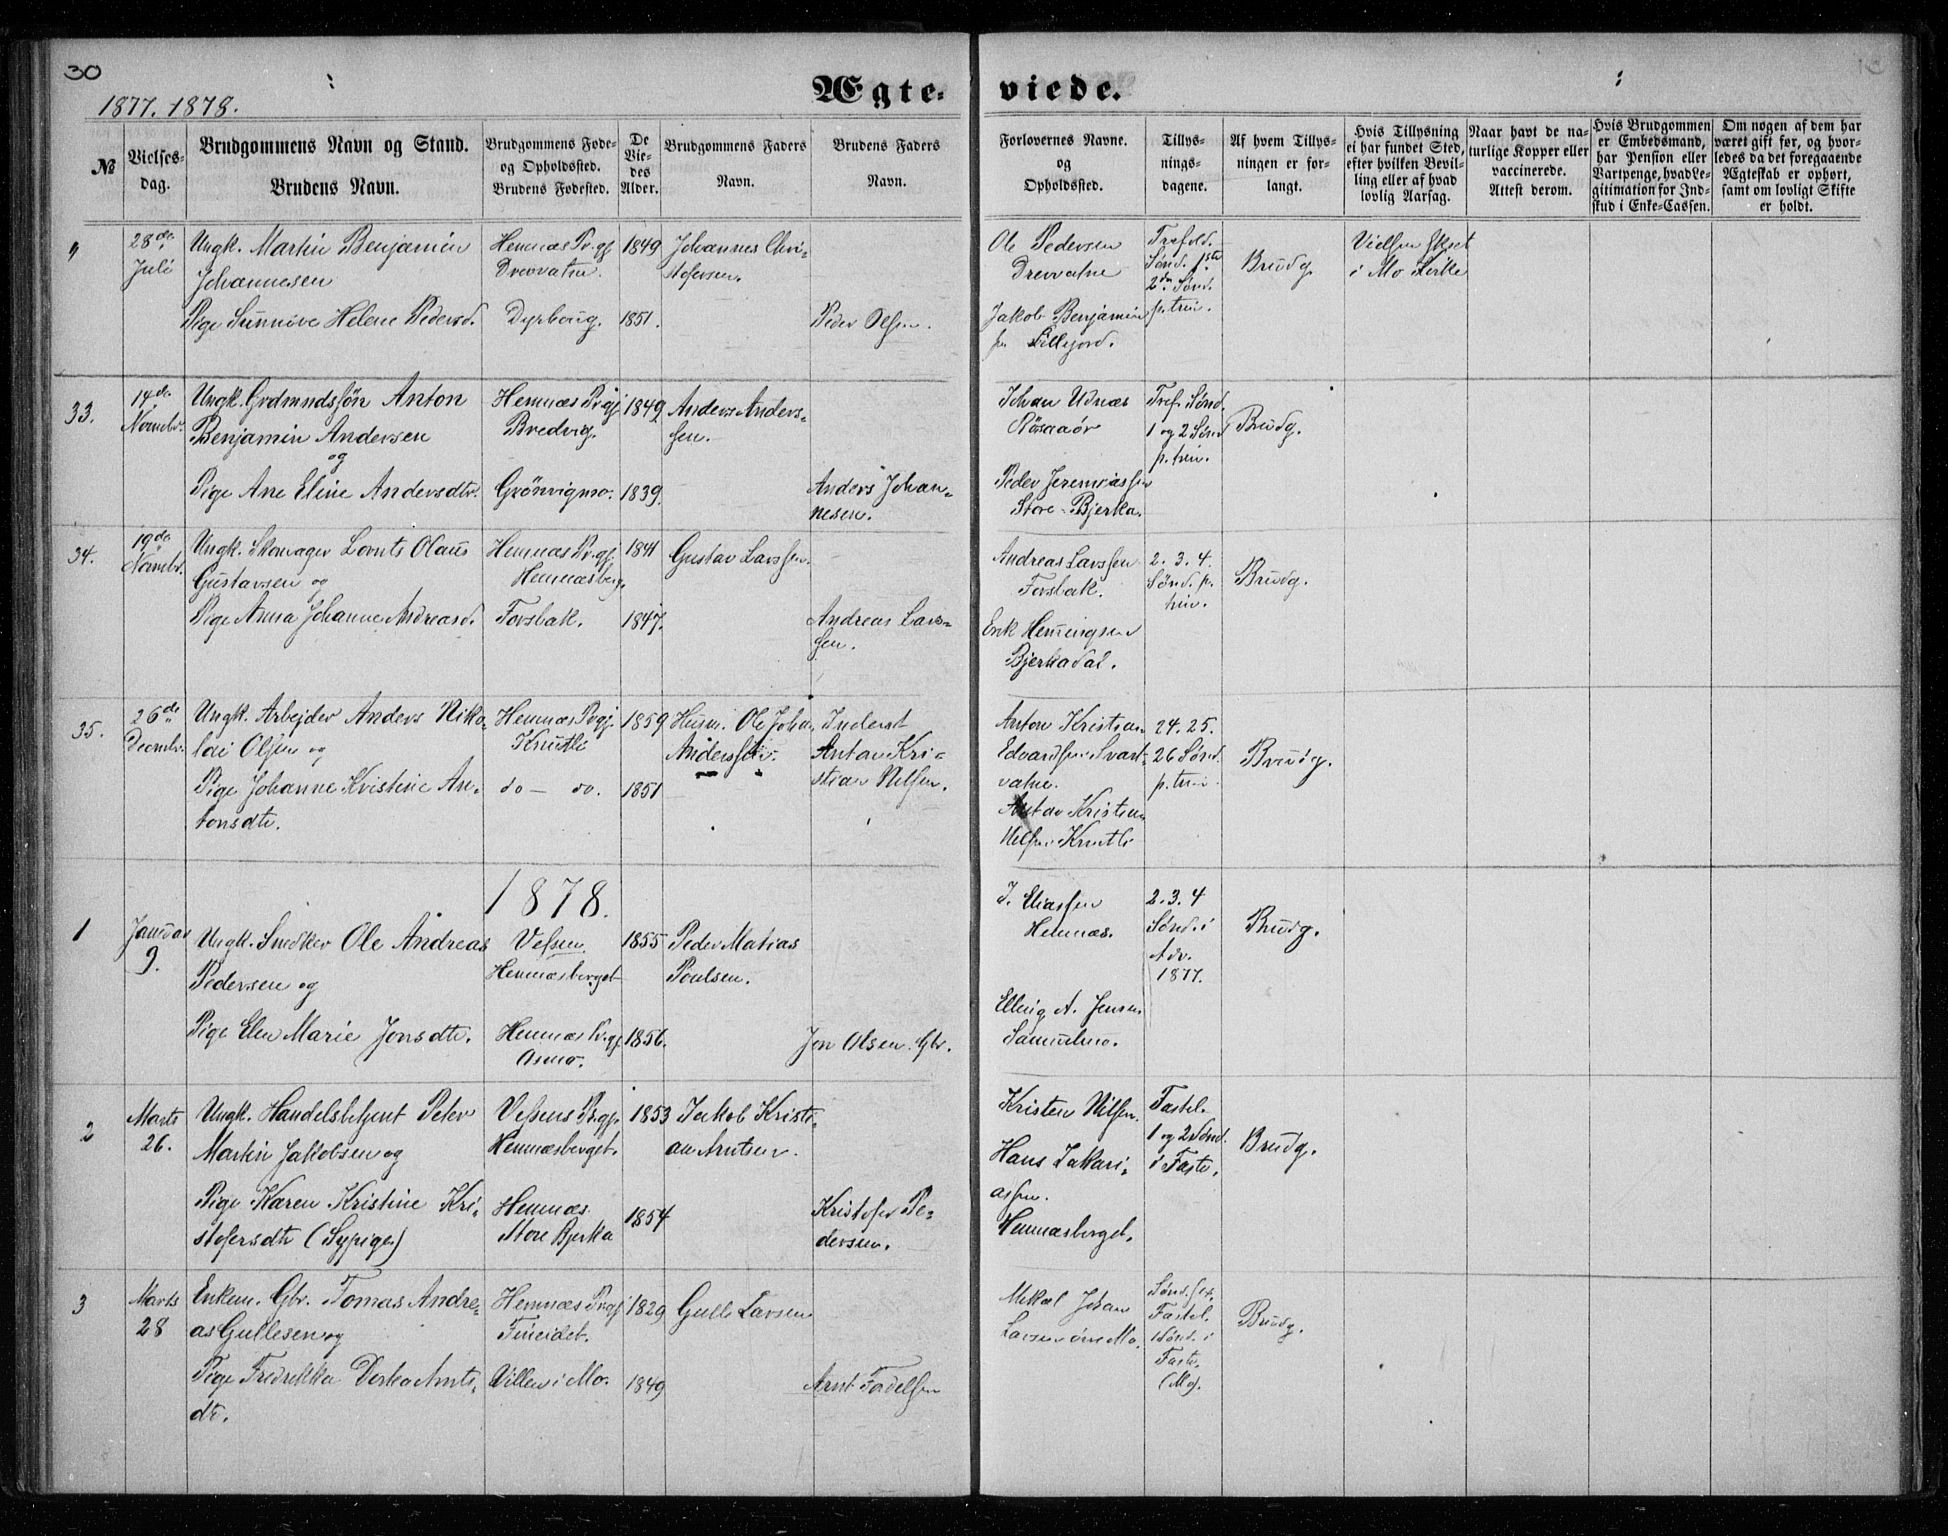 30
1877. 1878.
Ægte-
viede.
№
Vielses-
dag.
Brudgommens Navn og Stand.
Brudens Navn.
Brudgommens Føde-
og Opholdssted.
Brudens Fødested.
De
Vie-
des
Alder.
Brudgommens Faders
Navn.
Brudens Faders
Navn.
Forlovernes Navne.
og
Opholdssted.
Tillys-
nings-
dagene.
Af hvem Tillys-
ningen er for-
langt.
Hvis Tillysning
ei har fundet Sted,
efter hvilken Bevil-
ling eller af hvad
lovlig Aarsag.
Naar havt de na-
turlige Kopper eller
vaccinerede.
Attest derom.
Hvis Brudgommen
er Embedsmand,
har Pension eller
Vartpenge, hvad Le-
gitimation for Ind-
skud i Enke-Cassen.
Om nogen af dem har
været gift før, og hvor-
ledes da det foregaaende
Ægteskab er ophørt,
samt om lovligt Skifte
er holdt.
28de
Juli
Ungk. Martin Benjamin
Johannesen
Hemnæs Pr.gj.
Drevvatn.
1849
Johannes Chri-
stofersen.
Pige Sunnive Helene Pedersd.
Dyrhaug.
1851.
Peder Olsen.
Ole Pedersen
Drevvatne
Jakob Benjamin
sen Lillefjord.
Trefold.
Sønd. 1ste
2den Sønd.
p. trin.
Brudg.
Vielsen skeet
i Mo Kirke
33.
14de
Novmbr.
Ungk. Gudmundssøn Anton
Benjamin Andersen
og
Pige Ane Eline Andersdtr.
Hemnæs Pr.gj.
Bredvig.
Grønvigmo.
1849
1839.
Anders Anders-
sen.
Anders Johan-
nesen.
Johan Udnæs
Røsaaør
Peder Jeremiassen
Store-Bjerka.
Tref. Sønd.
1 og 2 Sønd
p. trin.
Brudg.
34.
19de
Novmbr.
Ungk. Skomager Lornts Olaus
Gustavsen og
Pige Anna Johanne Andreasd.
Hemnæs Pr.gj.
Hemnæsberg.
Forsbak.
1841
1847.
Gustav Larssen.
Andreas Lars-
sen.
Andreas Larssen
Forsbak.
Erik Hemingsen
Bjerkadal.
2. 3. 4.
Sønd. p.
trin.
Brudg.
35.
26de
Decmbr.
Ungk. Arbejder Anders Niko-
lai Olsen og
Pige Johanne Kristine An-
tonsdtr.
Hemnæs Pr.gj.
Knutli
do — do.
1859
1851
Husm. Ole Johan
Anderssen.
Inderst
Anton Kri-
stian Nilsen.
Anton Kristian
Edvardsen Svart-
vatne.
Anton Kristian
Nilsen Knutli
24. 25.
26 Sønd.
p. trin.
Brudg.
1878.
1
Januar
9.
Ungk. Snedker Ole Andreas
Pedersen og
Pige Elen Marie Jonsdtr.
Vefsen.
Hemnæsberget
Hemnæs Pr.gj.
Osmo.
1855
1856.
Peder Matias
Poulsen.
Jon Olsen. Gbr.
J. Eliassen
Hemnæs.
Elling A. Jensen
Samuelmo.
2. 3. 4
Sønd. i
Adv.
1877.
Brudg.
2
Marts
26.
Ungk. Handelsbetjent Peter
Martin Jakobsen og
Pige Karen Kristine Kri-
stofersdtr (Sypige)
Vefsens Pr.gj.
Hemnæsberget.
Hemnæs
Store Bjerka
1853
1854
Jakob Kristi-
an Arntsen.
Kristofer Pe-
dersen.
Kristen Nilsen.
Hans Zakari-
assen.
Hemnæsberget.
Fastel.
1 og 2 Sønd.
i Faste.
Brudg.
3
Marts
28
Enkem. Gbr. Tomas Andre-
as Gullesen og
Pige Fredrikka Dorka Arnts-
dt.
Hemnæs Pr.gj.
Fineidet.
Villen i Mo.
1829
1849
Gulle Larsen
Arnt Tordelsen
Mikal Johan
Larsen Mo.
Fastel.
Sønd. i
Faste.
(Mo).
Brudg.